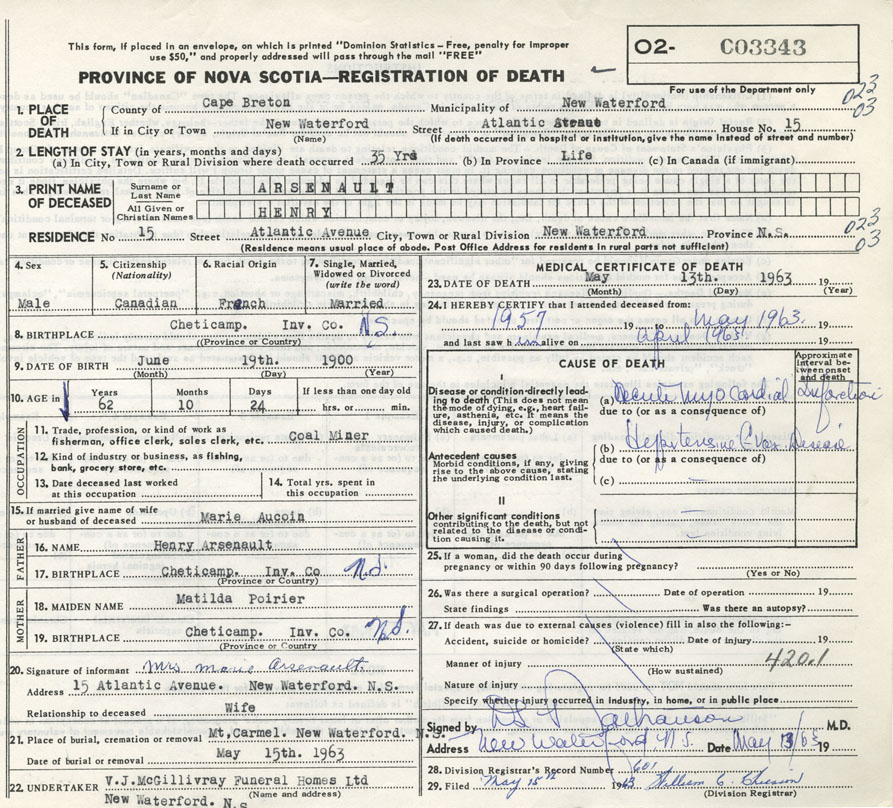 This form, if placed in an envelope, on which is printed "Dominion Statistics – Free, penalty for improper
use $50," and properly addressed will pass through the mail "FREE"
O2- C03343
PROVINCE OF NOVA SCOTIA—REGISTRATION OF DEATH
For use of the Department only
023
03
1. PLACE OF DEATH
County of Cape Breton Municipality of New Waterford
If in City or Town New Waterford Street Atlantic Avenue House No. 15
(Name) (If death occurred in a hospital or institution, give the name instead of street and number)
2. LENGTH OF STAY (in years, months and days)
(a) In City, Town or Rural Division where death occurred 35 Yrs (b) In Province Life (c) In Canada (if immigrant)
3. PRINT NAME OF DECEASED
Surname or Last Name ARSENAULT
All Given or Christian Names HENRY
023
03
RESIDENCE No 15 Street Atlantic Avenue City, Town or Rural Division New Waterford Province N.S.
(Residence means usual place of abode. Post Office Address for residents in rural parts not sufficient)
4. Sex
Male
5. Citizenship (Nationality)
Canadian
6. Racial Origin
French
7. Single, Married, Widowed or Divorced (write the word)
Married
8. BIRTHPLACE Cheticamp. Inv. Co. N.S.
(Province or Country)
9. DATE OF BIRTH June 19th. 1900
(Month) (Day) (Year)
10. AGE in Years 62 Months 10 Days 24 If less than one day old hrs. or min.
OCCUPATION
11. Trade, profession, or kind of work as fisherman, office clerk, sales clerk, etc. Coal Miner
12. Kind of industry or business, as fishing, bank, grocery store, etc.
13. Date deceased last worked at this occupation
14. Total yrs. spent in this occupation
15. If married give name of wife or husband of deceased Marie Aucoin
FATHER
16. NAME Henry Arsenault
17. BIRTHPLACE Cheticamp. Inv. Co N.S.
(Province or Country)
MOTHER
18. MAIDEN NAME Matilda Poirier
19. BIRTHPLACE Cheticamp. Inv. Co. N.S.
(Province or Country)
20. Signature of informant Mrs Marie Arsenault
Address 15 Atlantic Avenue. New Waterford. N.S.
Relationship to deceased Wife
21. Place of burial, cremation or removal Mt, Carmel. New Waterford. N.S.
Date of burial or removal May 15th. 1963
22. UNDERTAKER V.J.McGillivray Funeral Homes Ltd
(Name and address)
New Waterford. N.s
MEDICAL CERTIFICATE OF DEATH
23. DATE OF DEATH May 13th. 1963 19
(Month) (Day) (Year)
24. I HEREBY CERTIFY that I attended deceased from:
1957 19 to May 1963. 19
and last saw him alive on April 1963. 19
CAUSE OF DEATH
Approximate interval between onset and death
I
Disease or condition directly leading to death (This does not mean the mode of dying, e.g., heart failure, asthenia, etc. It means the disease, injury, or complication which caused death.)
(a) Acute Myocardial Infarction
due to (or as a consequence of)
Antecedent causes
Morbid conditions, if any, giving rise to the above cause, stating the underlying condition last.
(b) Hypertensive C-Vas Disease
due to (or as a consequence of)
(c)
II
Other significant conditions
contributing to the death, but not related to the disease or condition causing it.
25. If a woman, did the death occur during pregnancy or within 90 days following pregnancy?
(Yes or No)
26. Was there a surgical operation? Date of operation 19
State findings Was there an autopsy?
27. If death was due to external causes (violence) fill in also the following:-
Accident, suicide or homicide? Date of injury 19
(State which)
Manner of injury 420.1
(How sustained)
Nature of injury
Specify whether injury occurred in industry, in home, or in public place
Signed by M.D.
Address New Waterford N.S. Date May 13/63 19
28. Division Registrar's Record Number 601
29. Filed May 15th 1963 William C.
(Division Registrar)